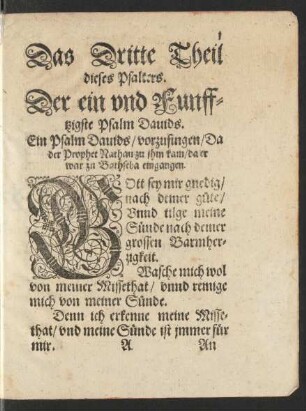 Das Dritte Theil
dieses Psalters.
Der ein vnd Funff⸗
tzigste Psalm Dauids.
Ein Psalm Dauids/ vorzusingen/ Da
der Prophet Nathan zu jhm kam/ da er
war zu Bathseba eingangen.
GOtt sey mir gnedig/
nach deiner güte/
Vnnd tilge meine
Sünde nach deiner
grossen Barmher⸗
tzigkeit.
Wasche mich wol
von meiner Missethat/ vnnd reinige
mich von meiner Sünde.
Denn ich erkenne meine Misse⸗
that/ vnd meine Sünde ist jmmer für
mir. A An